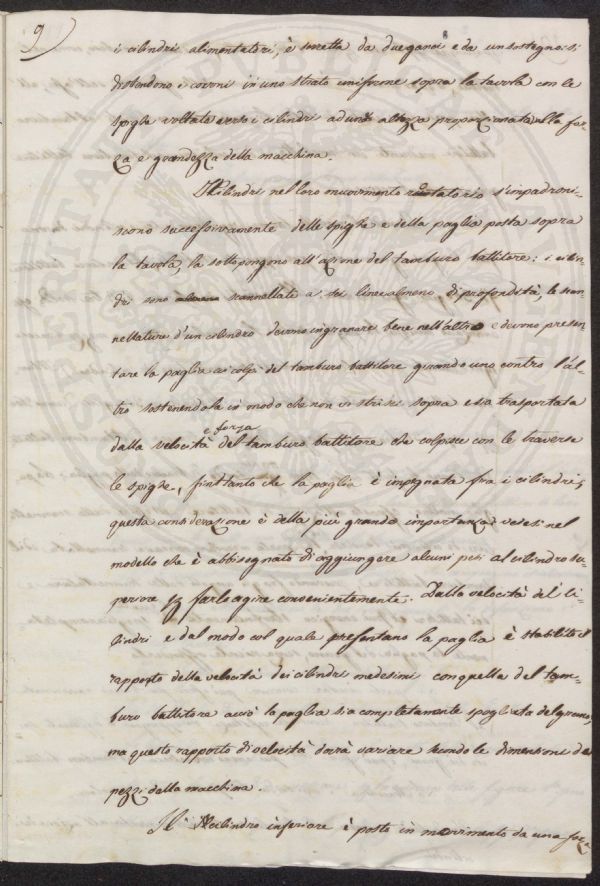 9
i cilindri alimentatori, è sorretta da due ganci e da un sostegno: si
distendono i covoni in uno strato uniforme sopra la tavola con le
spighe voltate verso i cilindri ad una altezza proporzionata alla for-
za e grandezza della macchina.
I cilindri nel loro muovimento rotatorio s'impadroni-
scono successivamente delle spighe e della paglia posta sopra
la tavola, la sottopongono all'azione del tamburo battitore: i cilin-
dri sono scannellati a sei linee almeno di profondità, le scan-
nellature d'un cilindro devono ingranare bene nell'altro e devono presen-
tare la paglia ai colpi del tamburo battitore girando uno contro l'al-
tro sostenendola in modo che non vi strisci sopra e sia trasportata
dalla velocità e forza del tamburo battitore che colpisce con le traverse
le spighe, finttanto che la paglia è impegnata fra i cilindri;
questa considerazione è della più grande importanza: vedesi nel
modello che è abbisognato di aggiungere alcuni pesi al cilindro su-
periore per farlo agire convenientemente. Dalla velocità de' ci-
lindri e dal modo col quale presentano la paglia è stabilito il
rapporto della velocità dei cilindri medesimi con quella del tam-
buro battitore acciò la paglia sia completamente spogliata del grano,
ma questo rapporto di velocità dovrà variare secondo le dimensioni de'
pezzi della macchina.
Il cilindro inferiore è posto in movimento da una forz